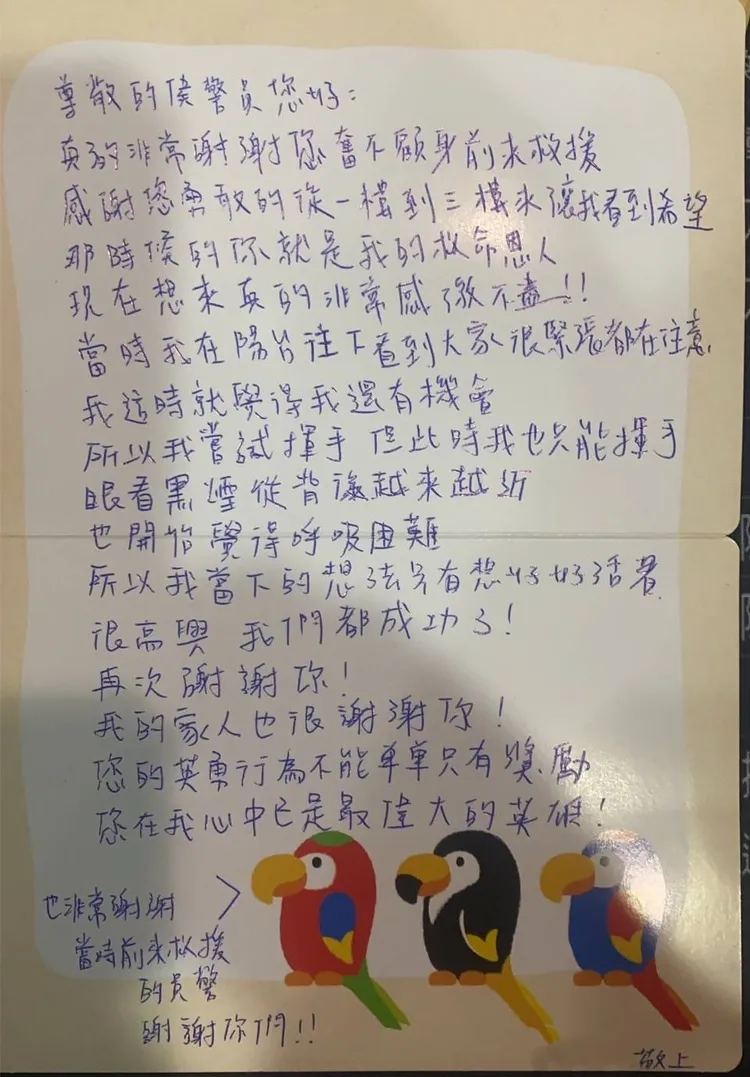 尊敬的侯警員您好：
真的非常謝謝您奮不顧身前來救援
感謝您勇敢的從一樓到三樓來讓我看到希望
那時候的你就是我的救命恩人
現在想來真的非常感激不盡!!
當時我在陽台往下看到大家很緊張都在注意
我這時就覺得我還有機會
所以我嘗試揮手 但此時我也只能揮手
眼看黑煙從背後越來越近
也開始覺得呼吸困難
所以我當下的想法只有想好好活著
很高興 我們都成功了!
再次謝謝你!
我的家人也很謝謝你!
您的英勇行為不能單單只有獎勵
您在我心中已是最偉大的英雄!
也非常謝謝
當時前來救援
的員警
謝謝你們!!
敬上